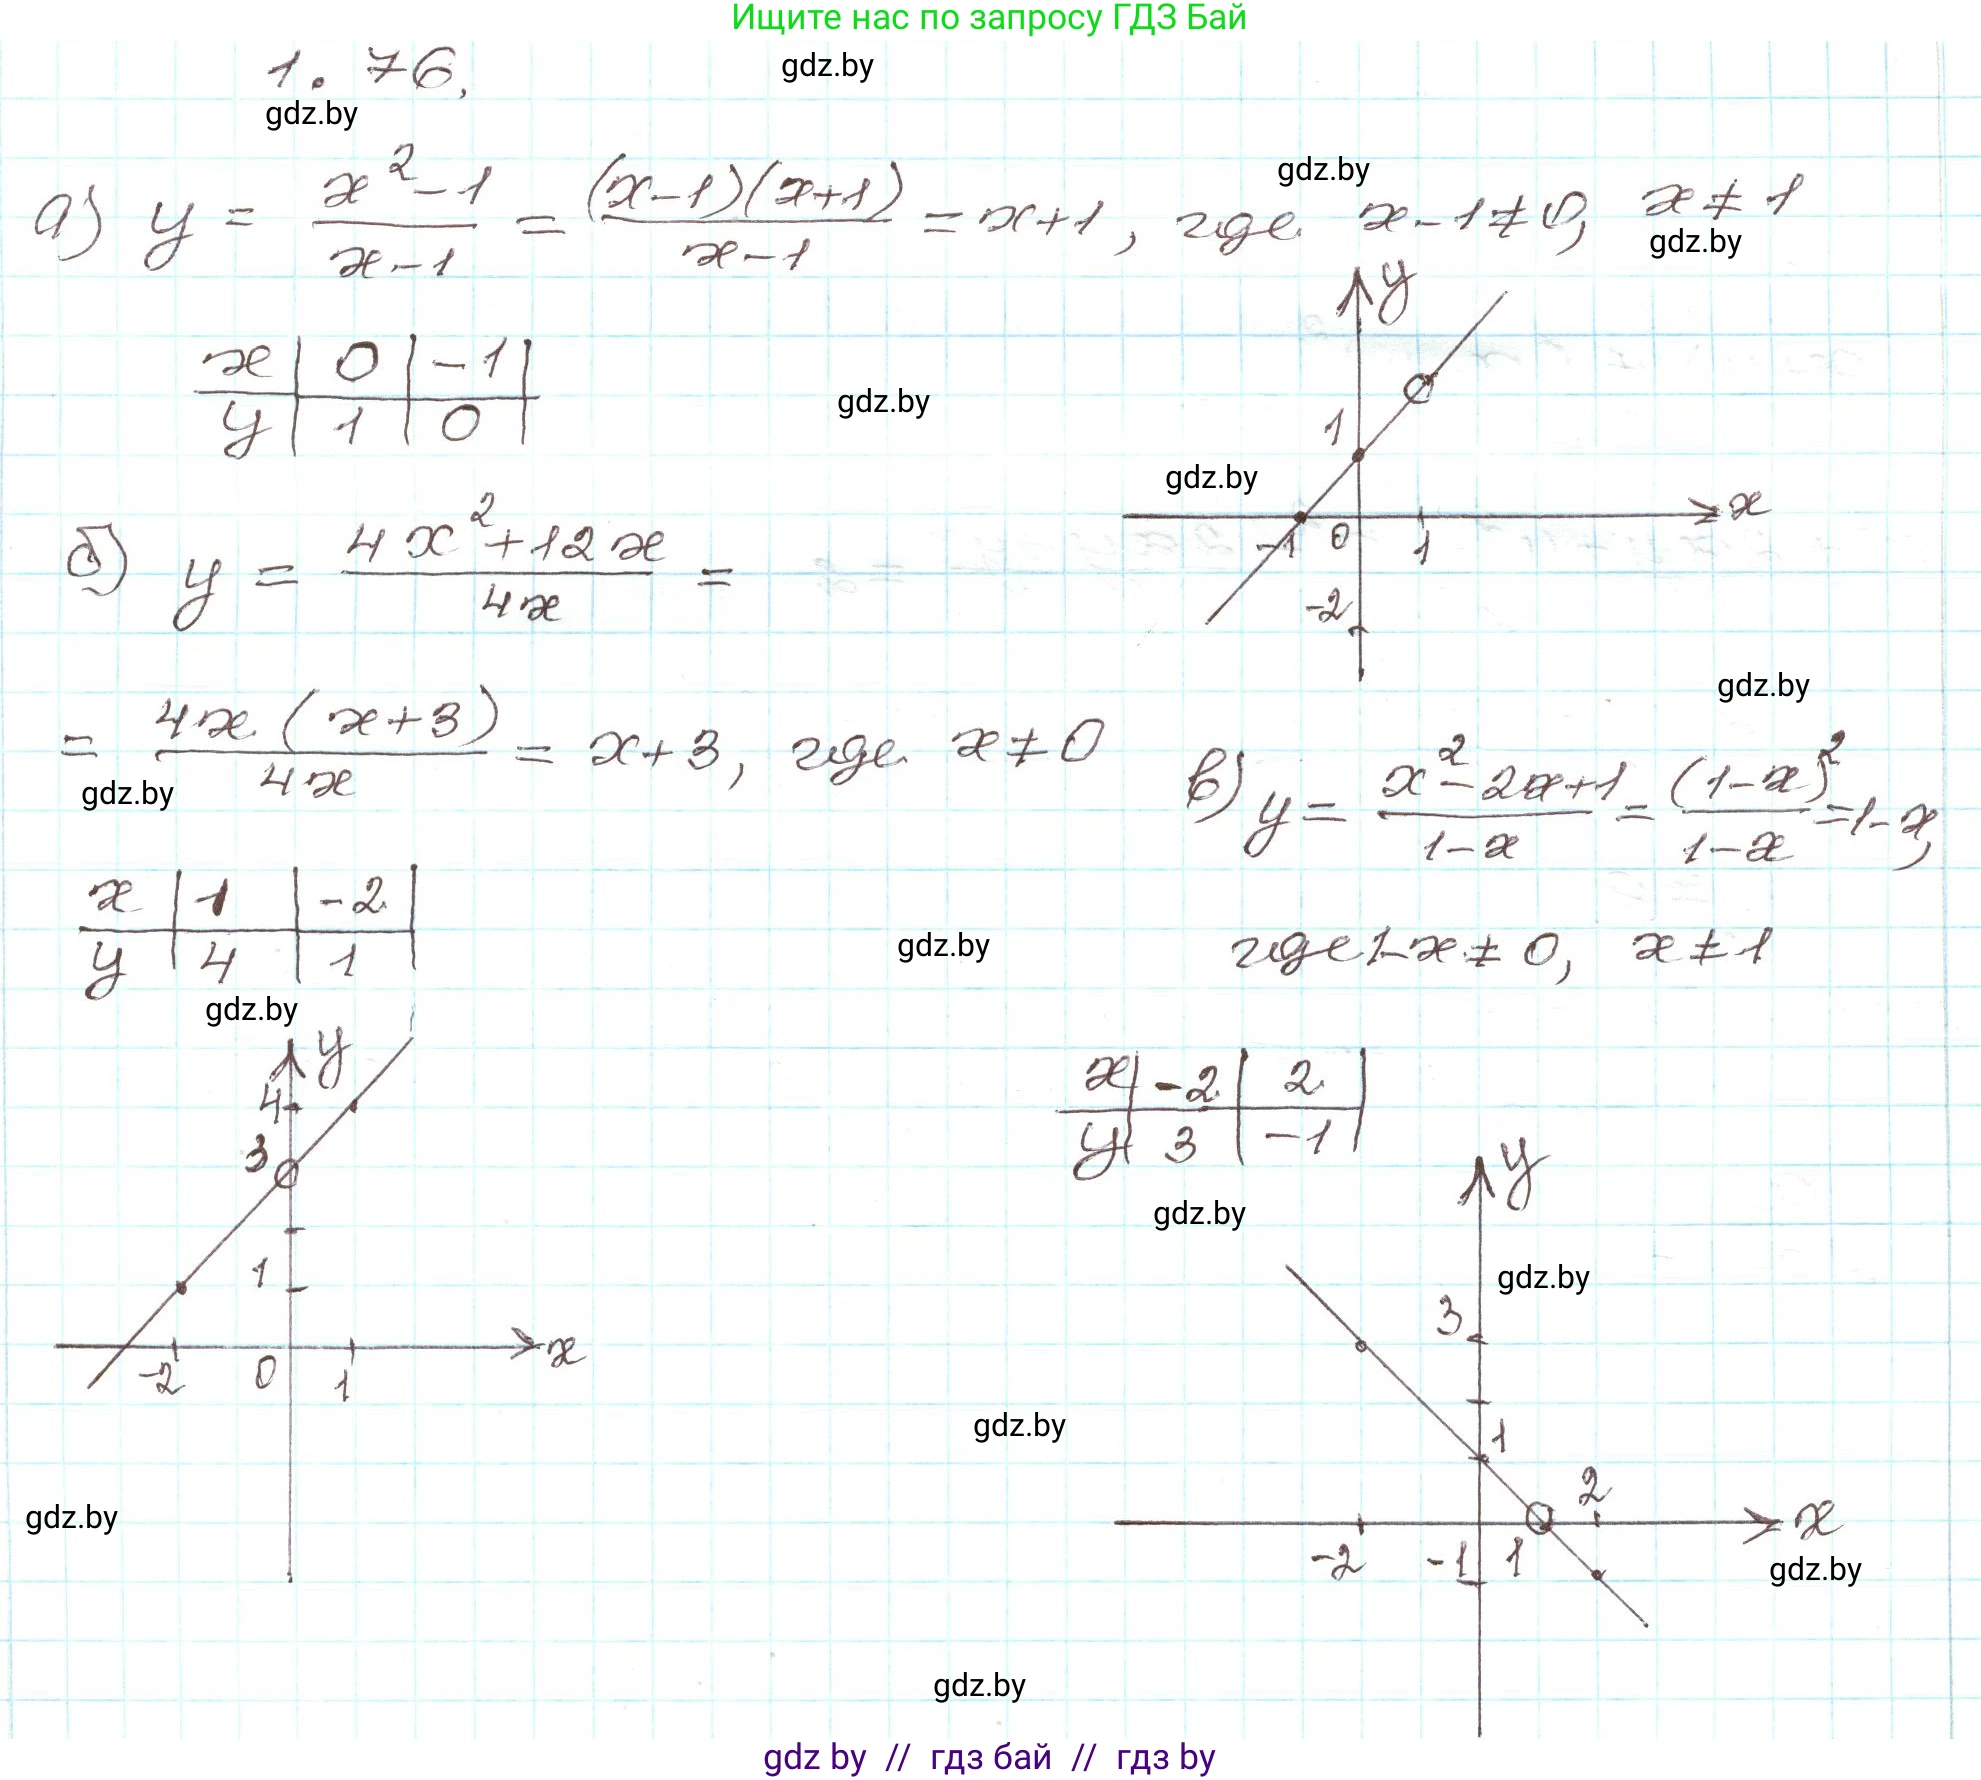 Ищите нас по запросу ГДЗ Бай
1.76.
gdz.by
gdz.by
gdz.by
а) y = \frac{x^2-1}{x-1} = \frac{(x-1)(x+1)}{x-1} = x+1, где x-1≠0, x≠1
gdz.by
x | 0 | -1 |
y | 1 | 0 |
gdz.by
y
1
gdz.by
x
-1 0 1
-2
б) y = \frac{4x^2+12x}{4x} =
= \frac{4x(x+3)}{4x} = x+3, где x≠0
gdz.by
gdz.by
в) y = \frac{x^2-2x+1}{1-x} = \frac{(1-x)^2}{1-x} = 1-x,
где 1-x≠0, x≠1
x | 1 | -2 |
y | 4 | 1 |
gdz.by
gdz.by
y
4
3
1
x
-2 0 1
gdz.by
x | -2 | 2 |
y | 3 | -1 |
gdz.by
y
gdz.by
3
gdz.by
1
2
x
-2 -1 1
gdz.by
gdz.by
gdz by // гдз бай // гдз by